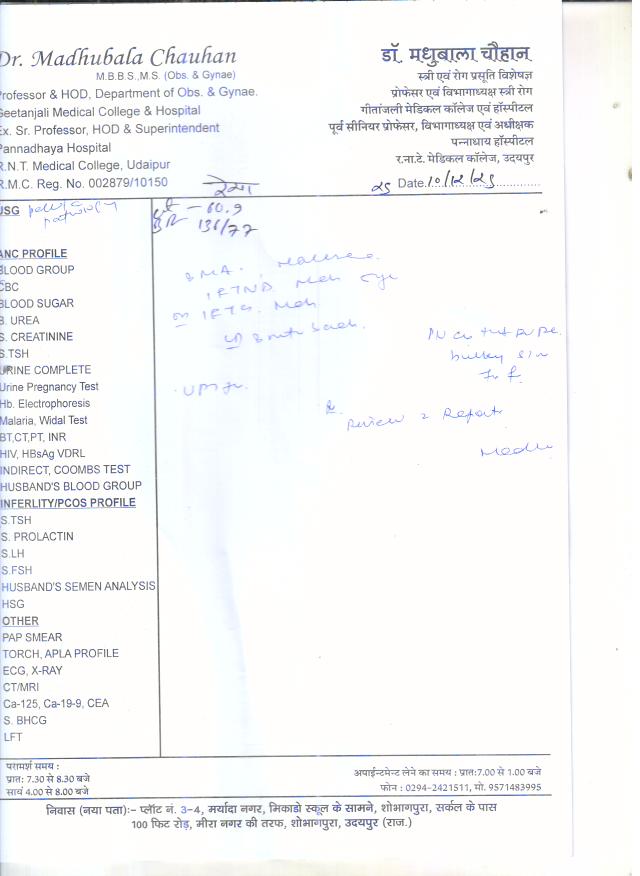 Dr. Madhubala Chauhan
M.B.B.S.,M.S. (Obs. & Gynae)
Professor & HOD, Department of Obs. & Gynae.
Geetanjali Medical College & Hospital
Ex. Sr. Professor, HOD & Superintendent
Pannadhaya Hospital
R.N.T. Medical College, Udaipur
R.M.C. Reg. No. 002879/10150
डॉ. मधुबाला चौहान
स्त्री एवं रोग प्रसूति विशेषज्ञ
प्रोफेसर एवं विभागाध्यक्ष स्त्री रोग
गीतांजली मेडिकल कॉलेज एवं हॉस्पीटल
पूर्व सीनियर प्रोफेसर, विभागाध्यक्ष एवं अधीक्षक
पन्नाधाय हॉस्पीटल
र.ना.टे. मेडिकल कॉलेज, उदयपुर
25 Date.10/12/25
USG
- 60.9
136/77
ANC PROFILE
BLOOD GROUP
CBC
BLOOD SUGAR
B. UREA
S. CREATININE
S.TSH
URINE COMPLETE
Urine Pregnancy Test
Hb. Electrophoresis
Malaria, Widal Test
BT,CT,PT, INR
HIV, HBsAg VDRL
INDIRECT, COOMBS TEST
HUSBAND'S BLOOD GROUP
INFERLITY/PCOS PROFILE
S.TSH
S. PROLACTIN
S.LH
S.FSH
HUSBAND'S SEMEN ANALYSIS
HSG
OTHER
PAP SMEAR
TORCH, APLA PROFILE
ECG, X-RAY
CT/MRI
Ca-125, Ca-19-9, CEA
S. BHCG
LFT
bulky
Review
Report
परामर्श समय :
प्रात: 7.30 से 8.30 बजे
सायं 4.00 से 8.00 बजे
अपाईन्टमेन्ट लेने का समय : प्रात:7.00 से 1.00 बजे
फोन : 0294-2421511, मो. 9571483995
निवास (नया पता):- प्लॉट नं. 3-4, मर्यादा नगर, मिकाडो स्कूल के सामने, शोभागपुरा, सर्कल के पास
100 फिट रोड़, मीरा नगर की तरफ, शोभागपुरा, उदयपुर (राज.)